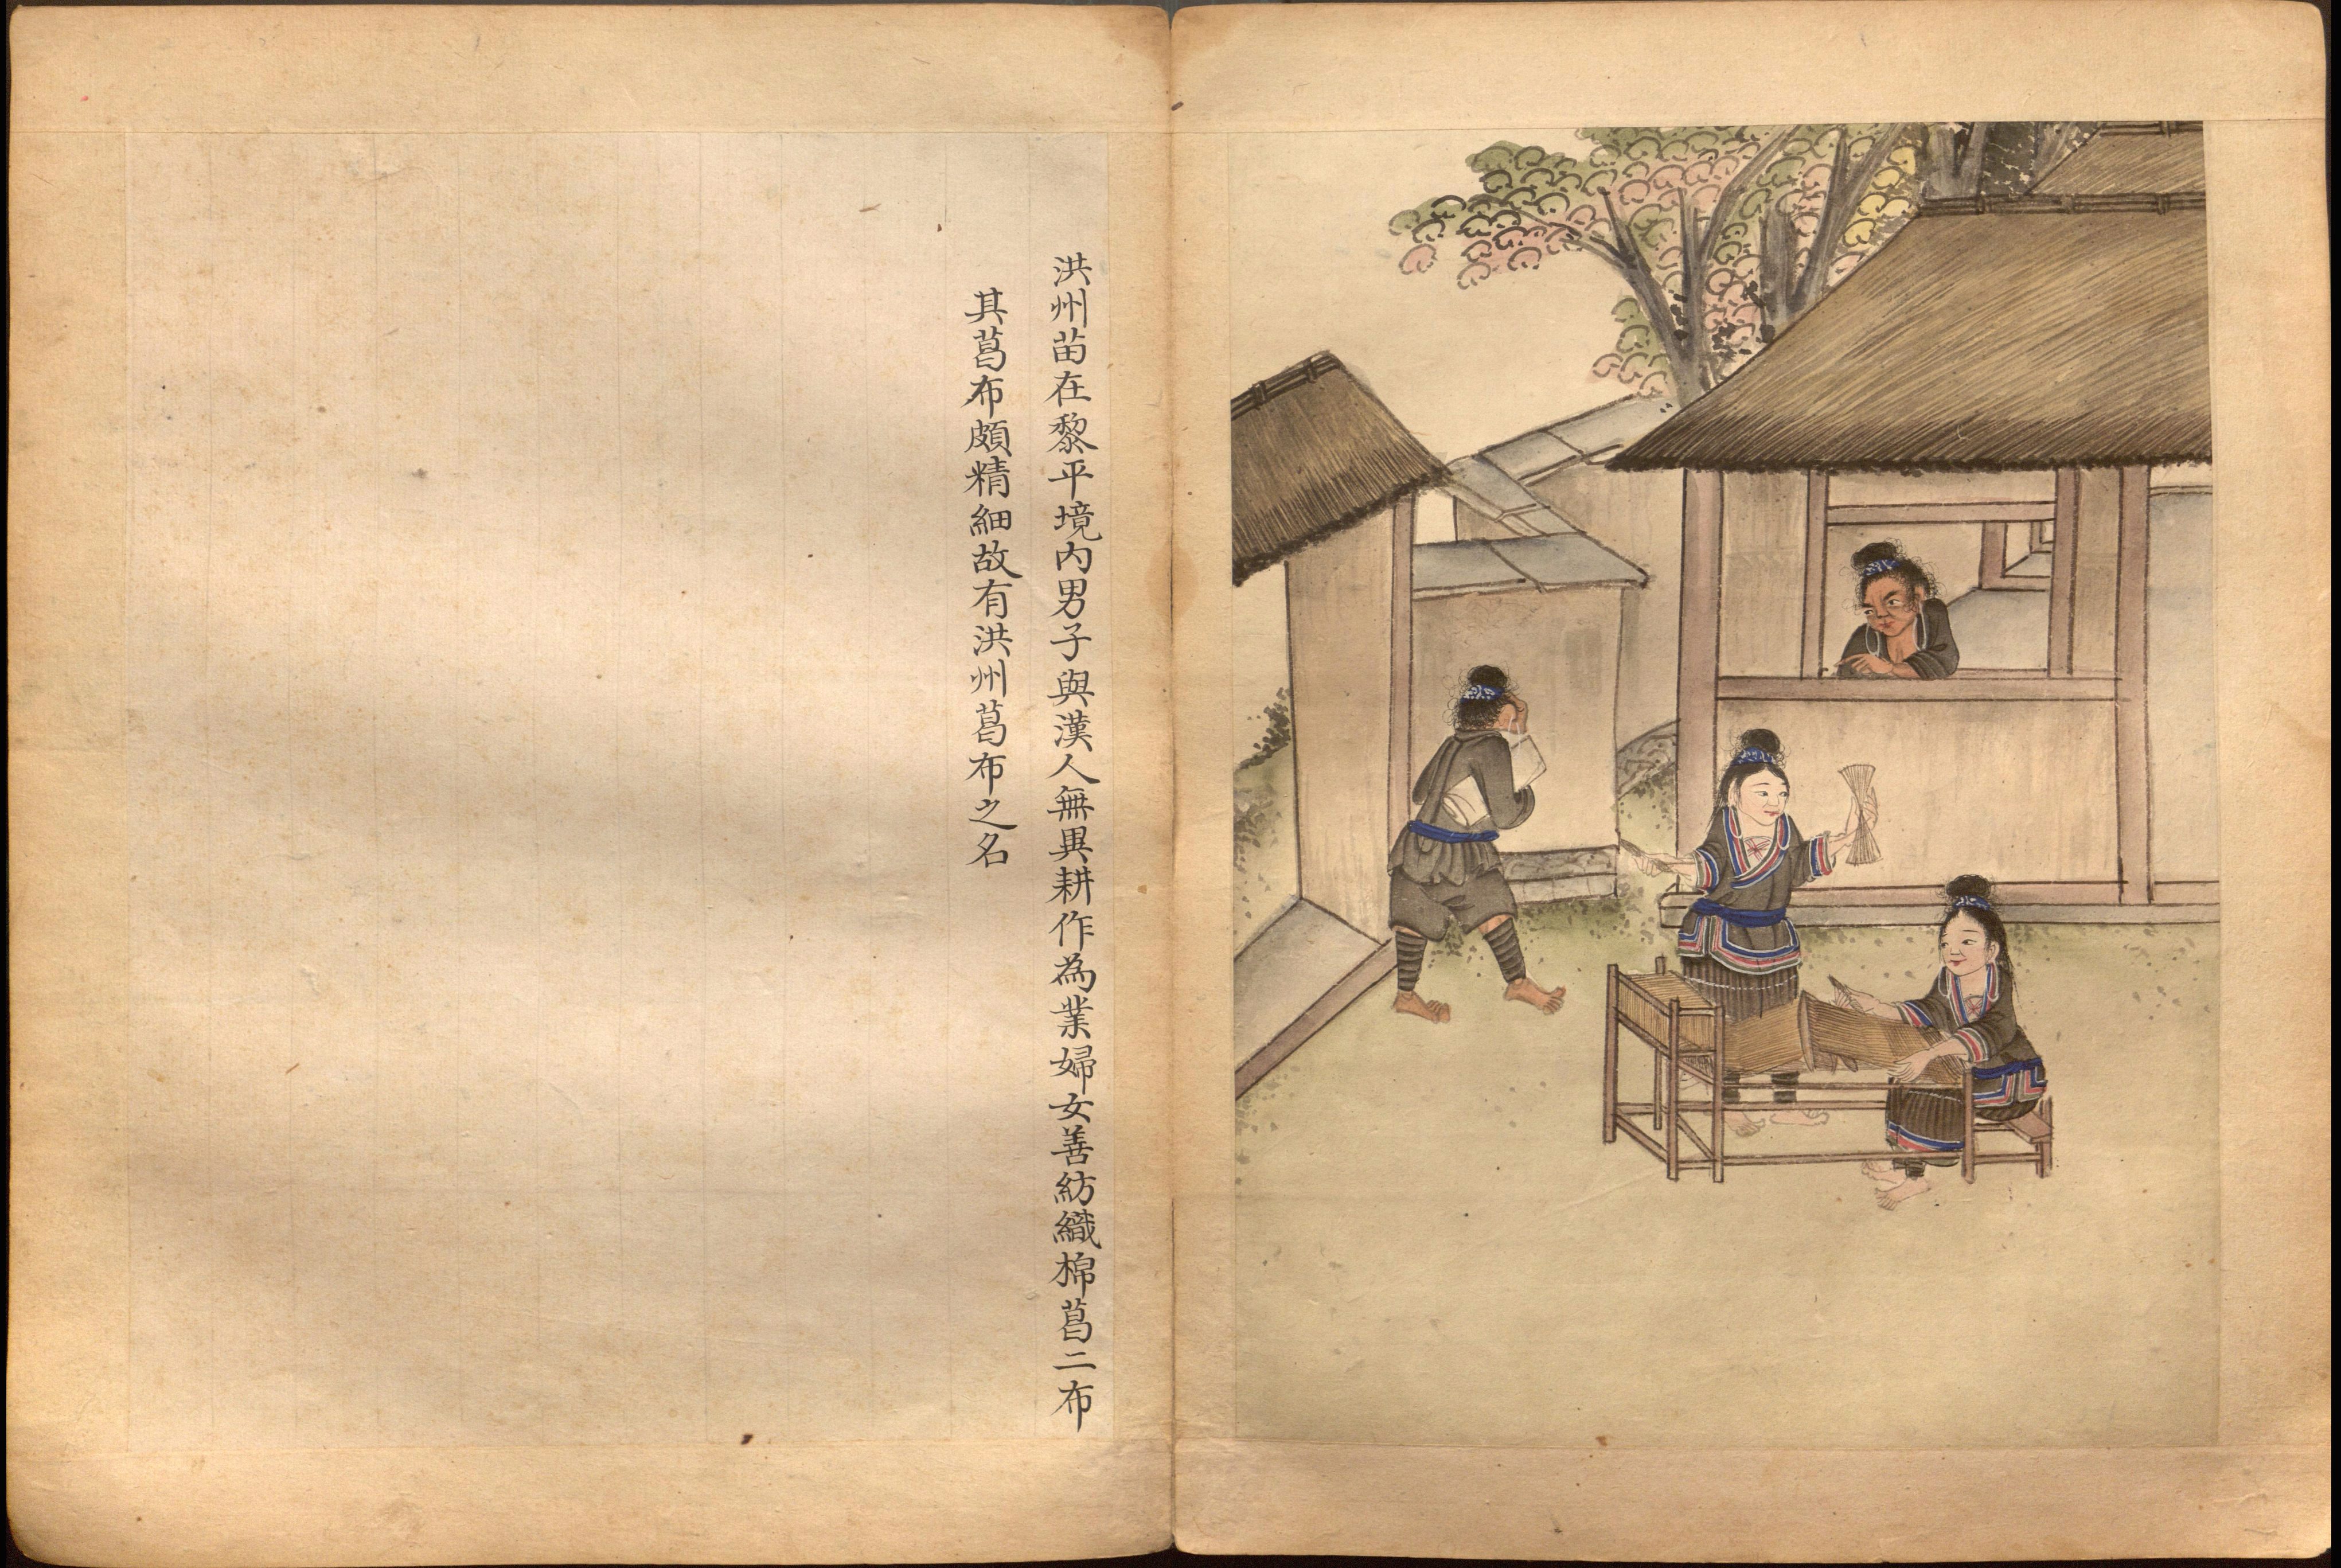 洪州苗在黎平境内男子與漢人無異耕作為業婦女善紡織棉葛二布
其葛布頗精細故有洪州葛布之名